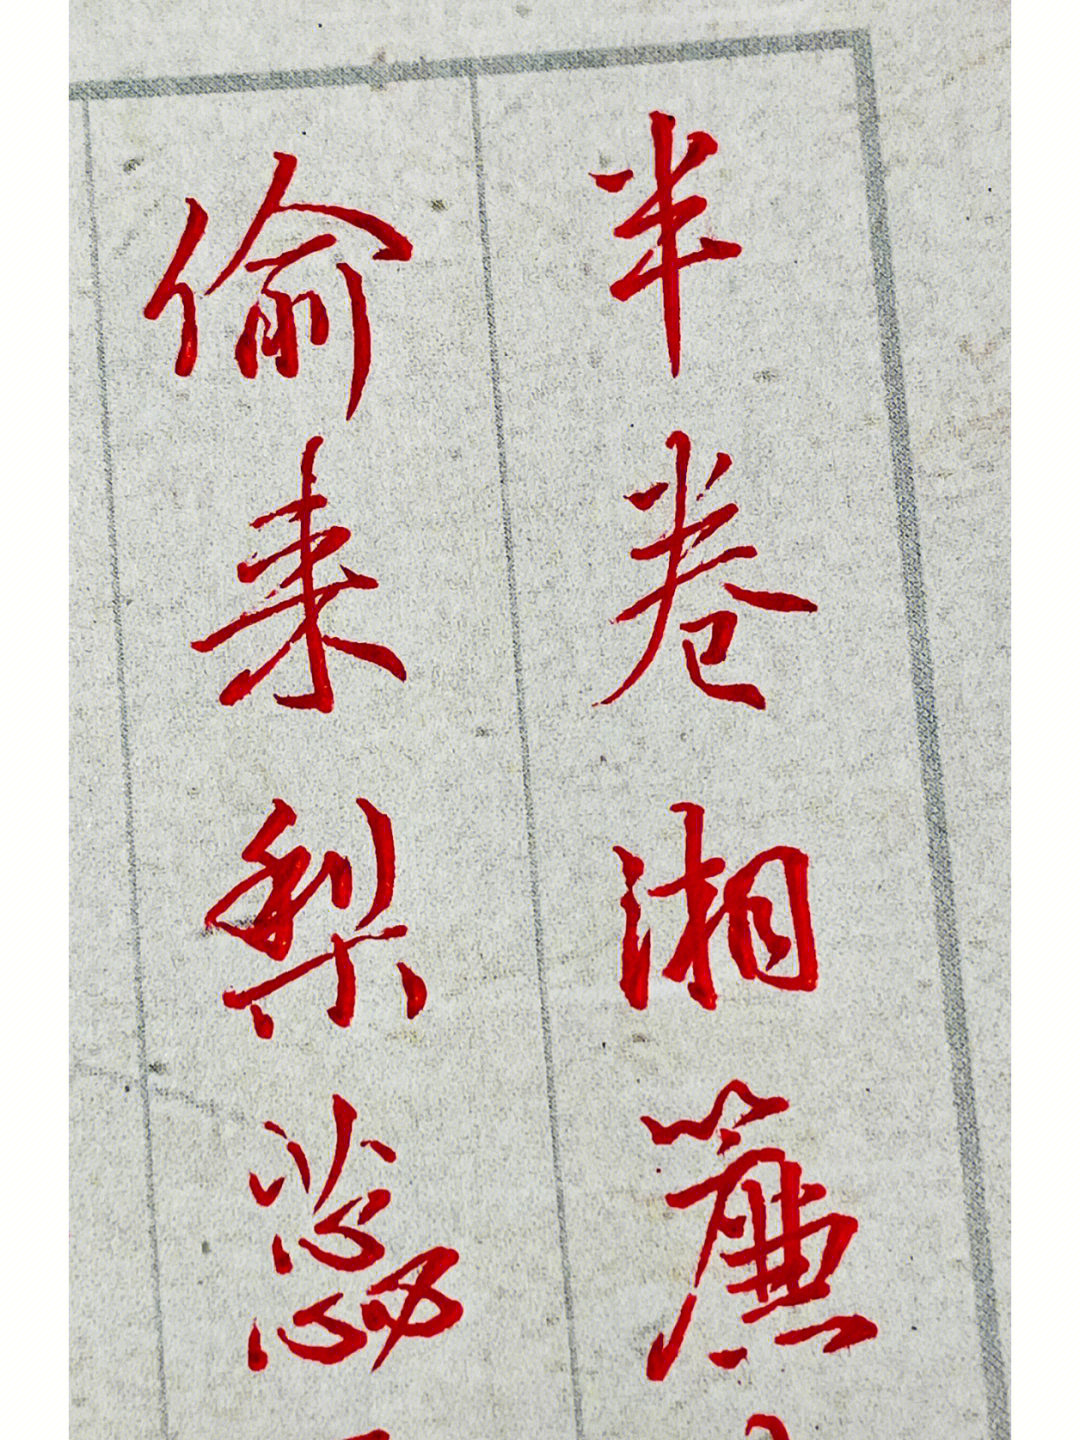 半卷湘簾
偷来梨蕊